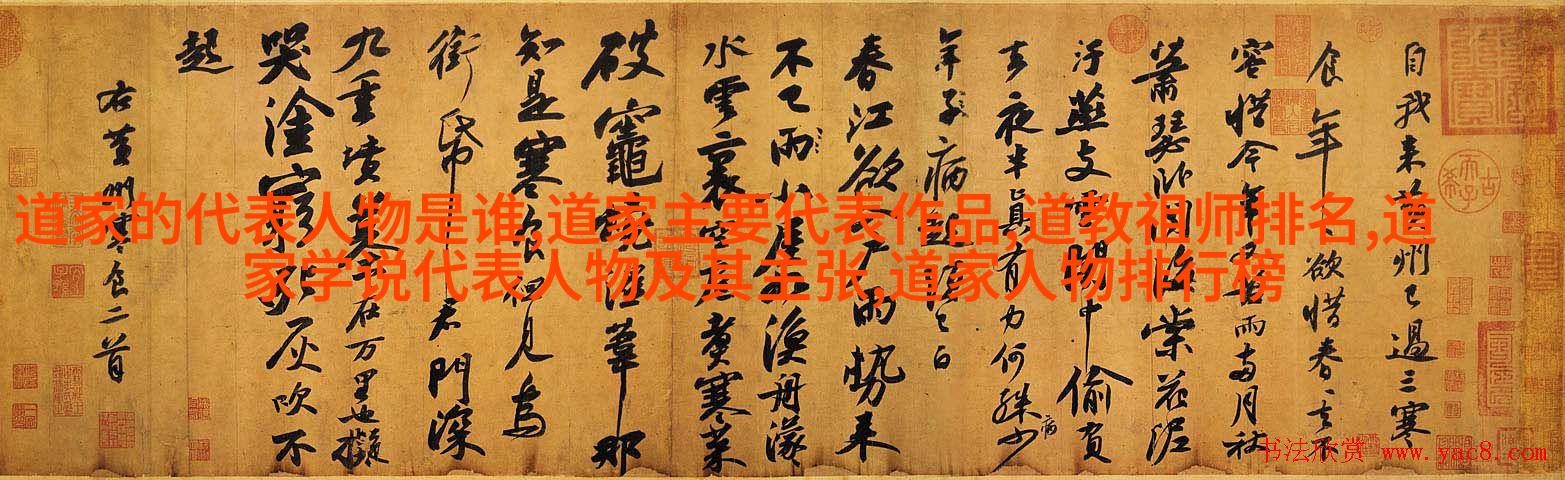 道家的代表人物是谁,道家主要代表作品,道教祖师排名,道
家学说代表人物及其主张,道家人物排行榜
自我来黄州已過三寒
食年〻欲惜春〻去不
容惜今年又苦雨兩月秋
蕭瑟卧聞海棠花泥
汙燕支雪闇中偷負
去夜半真有力何殊少
病
年子病起頭已白
春江欲入戶雨勢来
不已雨小屋如漁舟濛〻
水雲裏空庖煑寒菜
破竈燒濕葦那
知是寒食但見烏
銜帋君門深
九重墳墓在万里也擬
哭塗窮死灰吹不
起
右黄州寒食二首
书法欣赏 www.yac8.com